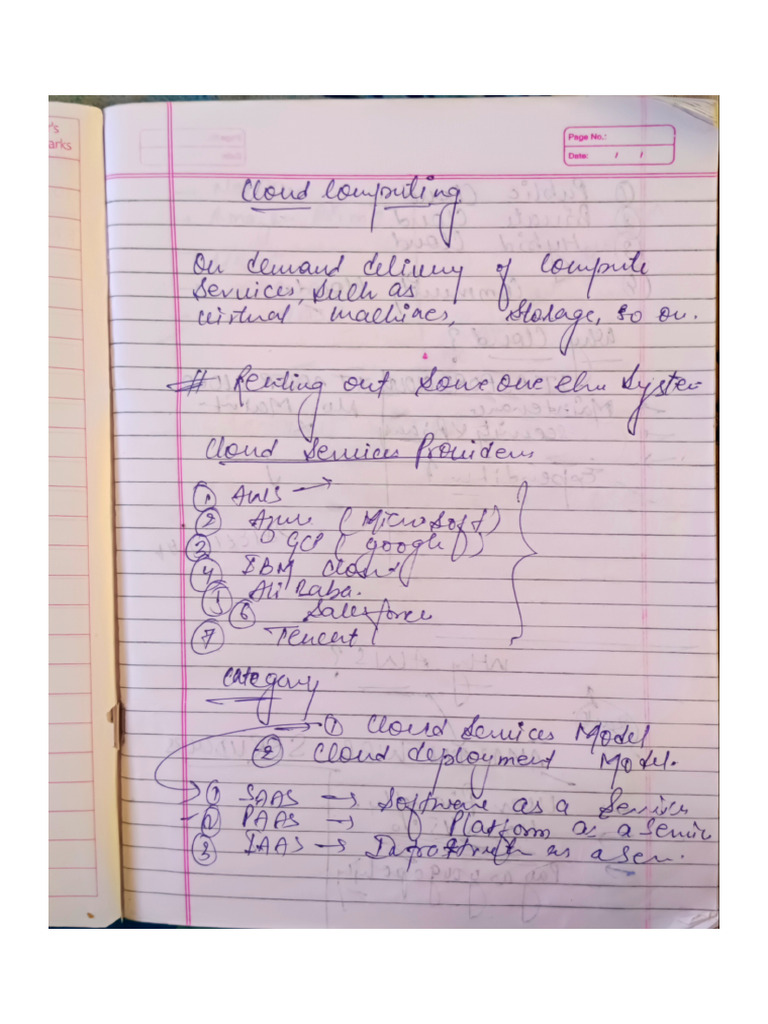 r's
arks
Page No.:
Date: / /
Cloud Computing
On demand delivery of Compute
Services, Such as
virtual machines, Storage, so on.
# Renting out Some one else System
Cloud Services Providers
① AWS →
② Azure (Microsoft)
③ GCP (google)
④ IBM cloud
⑤ Ali Baba.
⑥ Salesforce
⑦ Tencent
Category
① Cloud Services Model
② Cloud deployment Model.
① SAAS → Software as a Service
② PAAS → Platform as a Servic
③ IAAS → as a Ser.